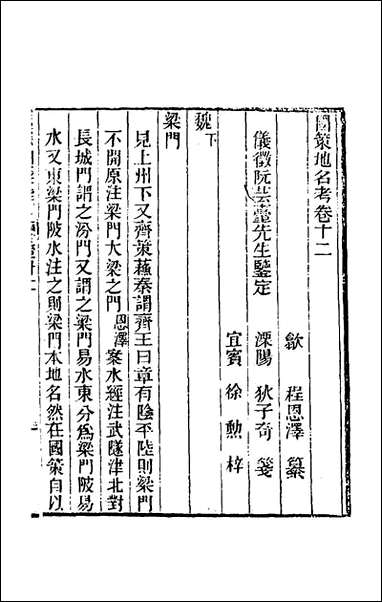 國策地名考卷十二
歙 程恩澤 纂
儀徵阮芸臺先生鑒定
溧陽 狄子奇 箋
宜賓 徐勲 梓
魏下
梁門
見上州下又齊策蘇秦謂齊王曰章有陰平陸則梁門
不開原注梁門大梁之門恩澤案水經注武隧津北對
長城門謂之汾門又謂之梁門易水東分爲梁門陂易
水又東梁門陂水注之則梁門本地名然在國策自以